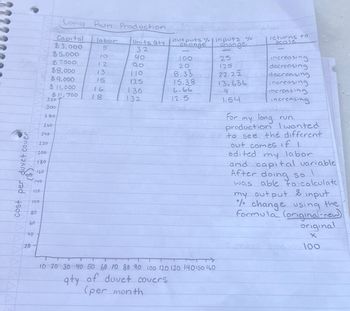 Long Run Production
Capital labor units qty outputs % change inputs % change returns to scale
$3,000 5 32 — —
$5,000 10 40 100 25 increasing
$7500 12 90 20 125 decreasing
$8,000 13 110 8.33 22.22 decreasing
$9,000 15 125 15.38 13.636 increasing
$11,000 16 130 6.66 4 increasing
$11,700 18 132 12.5 1.54 increasing
For my long run
production I wanted
to see the different
out comes if I
edited my labor
and capital variable
After doing so I
was able to calculate
my output & input
% change using the
formula (original-new)
original
x
100
cost per duvet cover
($)
10 20 30 40 50 60 70 80 90 100 120 130 140 150 160
qty of duvet covers
(per month